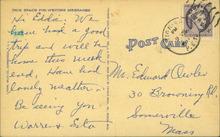 THIS SPACE FOR WRITING MESSAGES
Hi Edd. We
have had a good
trip and will be
home this week
end. Have had
lovely weather.
Be seeing you
Warren &
POST CARD
Mr. Edward Owler
30 Browning Rd.
Somerville
Mass.